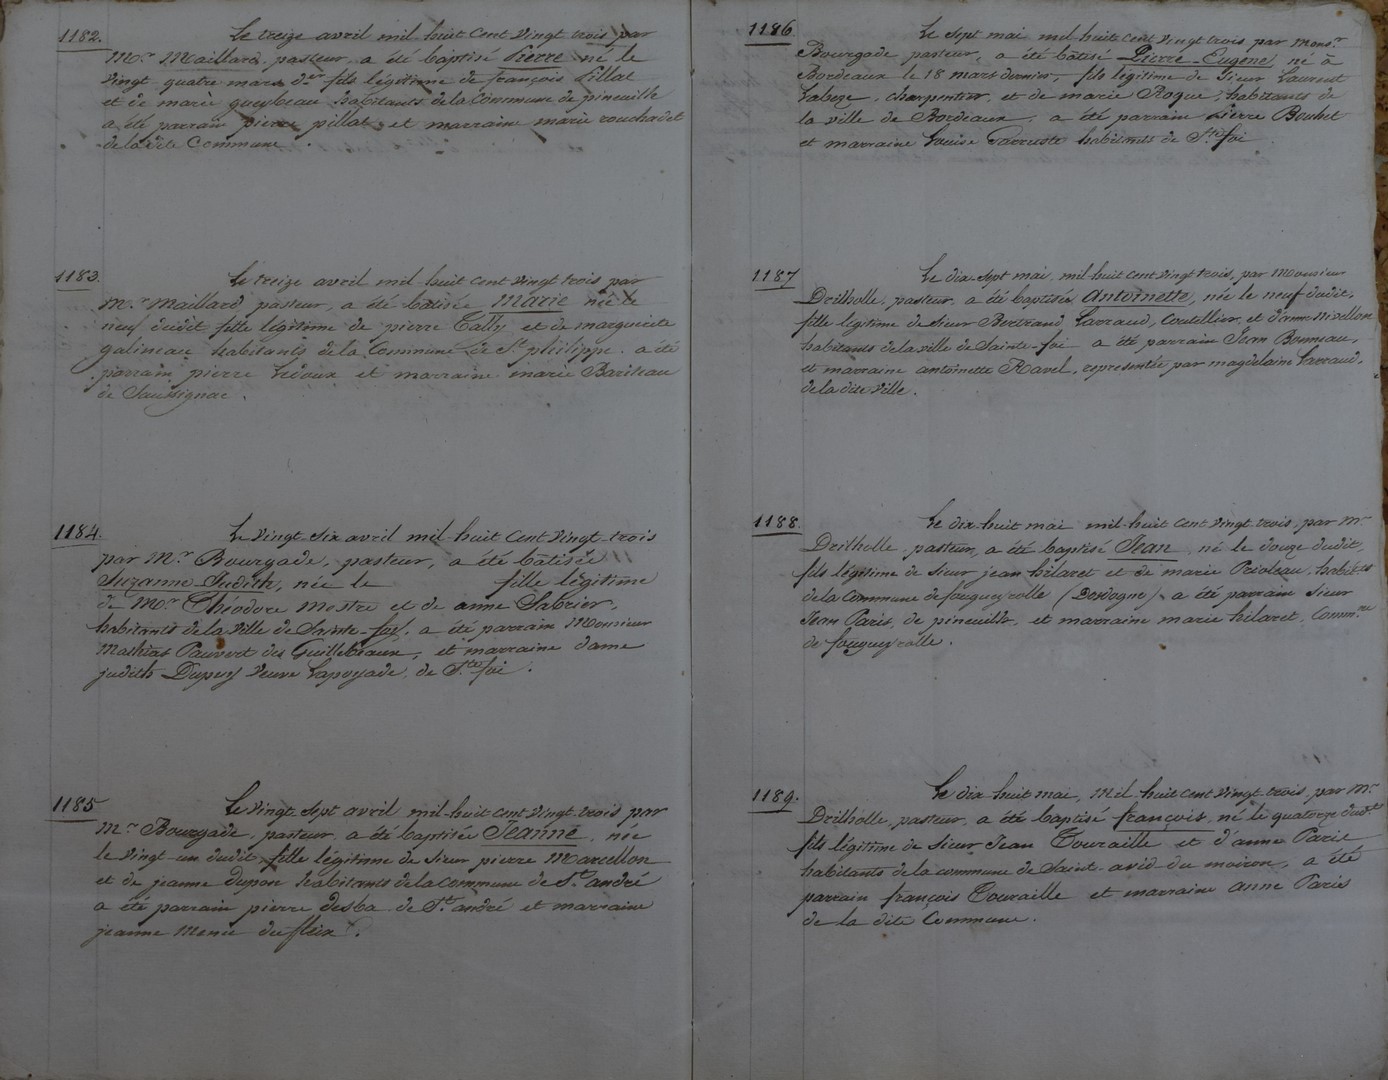 1182.
Le treize avril mil huit cent vingt trois par
Mr. Maillard, pasteur, a été baptisé Pierre né le
vingt quatre mars der fils légitime de françois Pillat
et de marie gueybeau habitants de la commune de pineuilh
a été parrain pierre pillat et marraine marie rouchadet
de la dite Commune.
1183.
Le treize avril mil huit cent vingt trois par
Mr. Maillard pasteur, a été batisée Marie née le
neuf dudit fille légitime de pierre Tally et de marguerite
galineau habitants de la Commune de St. philippe. a été
parrain pierre Ledoux et marraine marie Bariteau
de Saussignac.
1184.
Le vingt-six avril mil huit cent vingt-trois
par Mr. Bourgade, pasteur, a été bâtisée
Suzanne Judith, née le fille légitime
de Mor. Théodore Mestre et de anne Sabrier,
habitants de la ville de Sainte-foy, a été parrain Monsieur
Mathias Pauvert des Guillebeaux, et marraine dame
judith Dupuy Veuve Lapoyade, de Ste. foi.
1185
Le vingt sept avril mil-huit cent vingt-trois, par
Mr. Bourgade, pasteur, a été baptisée Jeanne, née
le vingt-un dudit, fille légitime de sieur pierre Marcellon
et de jeanne dupon habitants de la commune de St. andré
a été parrain pierre desba de St. andré et marraine
jeanne Menie du fleix.
1186
Le sept mai mil huit cent vingt trois par monsr.
Bourgade pasteur, a été bâtisé Pierre-Eugène, né à
Bordeaux le 18 mars dernier, fils légitime de Sieur Laurent
Labeze, charpentier, et de marie Roque, habitants de
la ville de Bordeaux, a été parrain pierre Boubet
et marraine Louise Parruste habitants de Ste. foi
1187
Le dix-sept mai, mil-huit cent vingt trois, par Monsieur
Drilholle, pasteur, a été baptisée Antoinette, née le neuf dudit,
fille légitime de sieur Bertrand Larraud, Coutellier, et d'anne Nivellon
habitants de la ville de Sainte-foi a été parrain Jean Bonneau,
et marraine antoinette Ravel, représentée par magdelaine Larraud,
de la dite ville.
1188.
Le dix-huit mai mil-huit cent vingt-trois, par Mr
Drilholle, pasteur, a été baptisé Jean, né le douze dudit,
fils légitime de sieur jean hilaret et de marie Prioleau, habitts
de la commune de fougueyrolle (Dordogne) a été parrain sieur
Jean Paris, de pineuilh, et marraine marie hilaret, Commne
de fougueyrolle.
1189.
Le dix huit mai, mil-huit cent vingt-trois, par Mr
Drilholle, pasteur, a été baptisé françois, né le quatorze dudit
fils légitime de sieur Jean Touraille et d'anne Paris
habitants de la commune de Saint-avid du moiron, a été
parrain françois Touraille et marraine anne Paris
de la dite Commune.